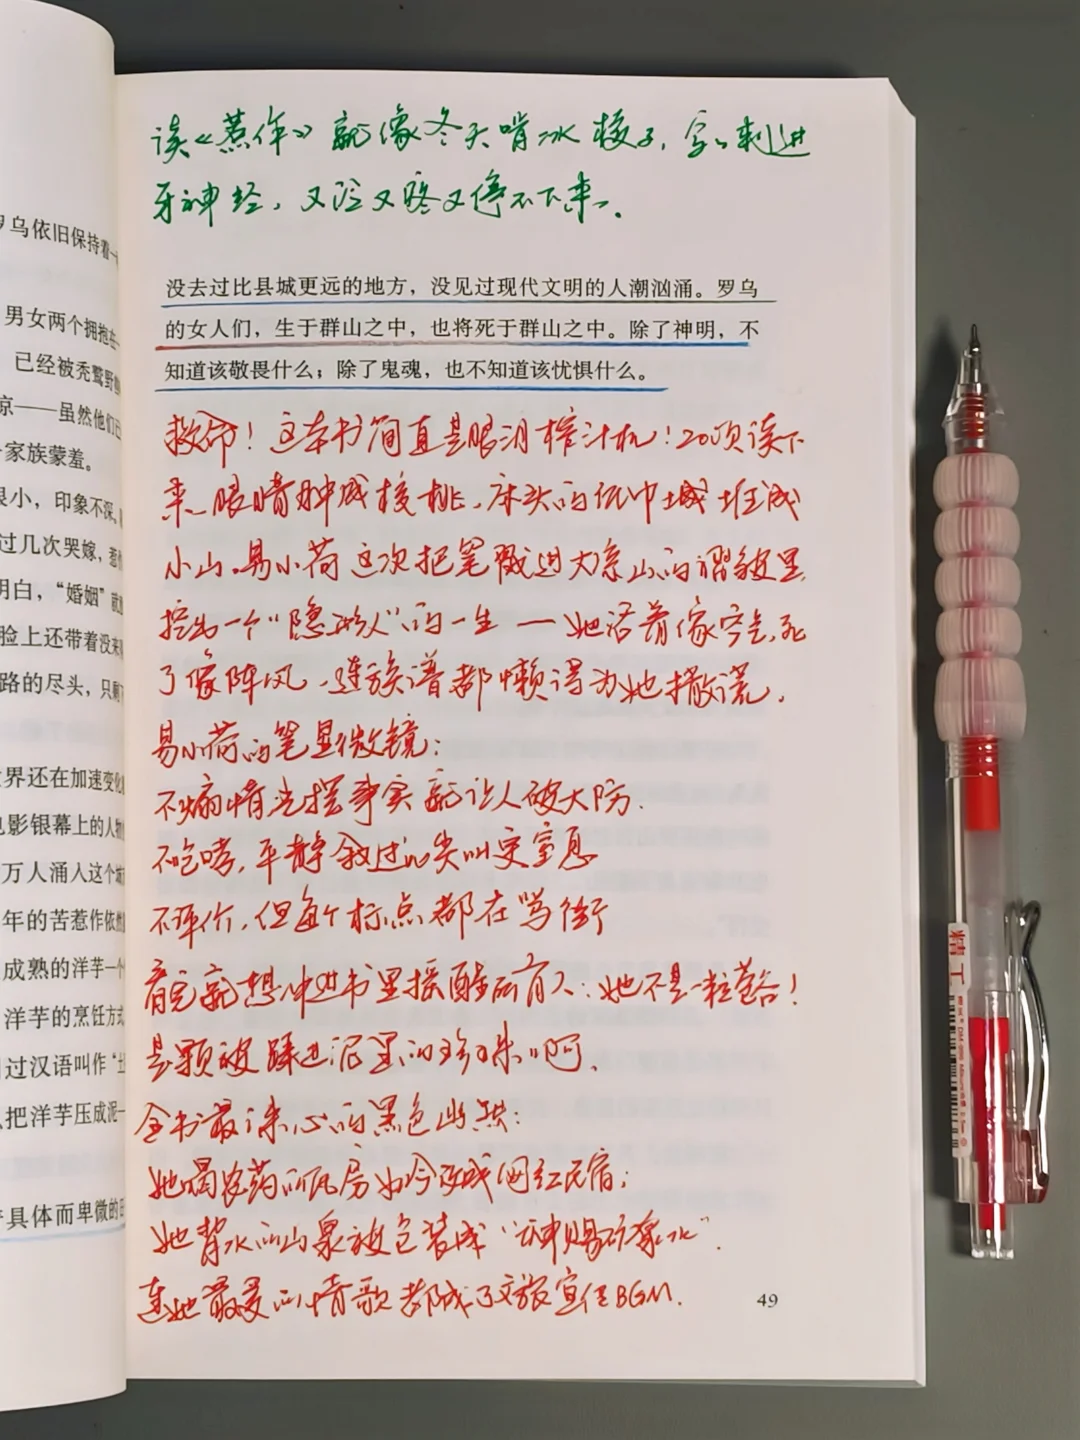 读《惹作》就像冬天啃冰核子，字字刺进
牙神经，又冷又疼又停不下来。
没去过比县城更远的地方，没见过现代文明的人潮汹涌。罗乌
的女人们，生于群山之中，也将死于群山之中。除了神明，不
知道该敬畏什么；除了鬼魂，也不知道该忧惧什么。
救命！这本书简直是眼泪榨汁机！20页读下
来，眼睛肿成核桃，床头的纸巾堆成
小山。易小荷这次把笔戳进大凉山的褶皱里，
挖出一个“隐形人”的一生——她活着像空气，死
了像阵风，连族谱都懒得为她撒谎。
易小荷的笔是显微镜：
不煽情，光摆事实就让人破大防
不咆哮，平静叙述比尖叫更窒息
不评价，但每个标点都在骂街
看完就想冲进书里摇醒所有人：她不是一粒荞谷！
是颗被踩进泥里的珍珠啊。
全书最诛心的黑色幽默：
她喝农药的瓦房如今改成网红民宿；
她背水的山泉被包装成“神赐矿泉水”。
连她最爱的情歌都成了文旅宣传BGM。
49
罗乌依旧保持着一
男女两个拥抱在一
已经被秃鹫野
京——虽然他们已
家族蒙羞。
很小，印象不深，
过几次哭嫁，惹
明白，“婚姻”就
脸上还带着没来
路的尽头，只剩
世界还在加速变化
电影银幕上的人物
万人涌入这个城
年的苦惹作依然
成熟的洋芋一个
洋芋的烹饪方式
过汉语叫作“土
把洋芋压成泥一
具体而卑微的日